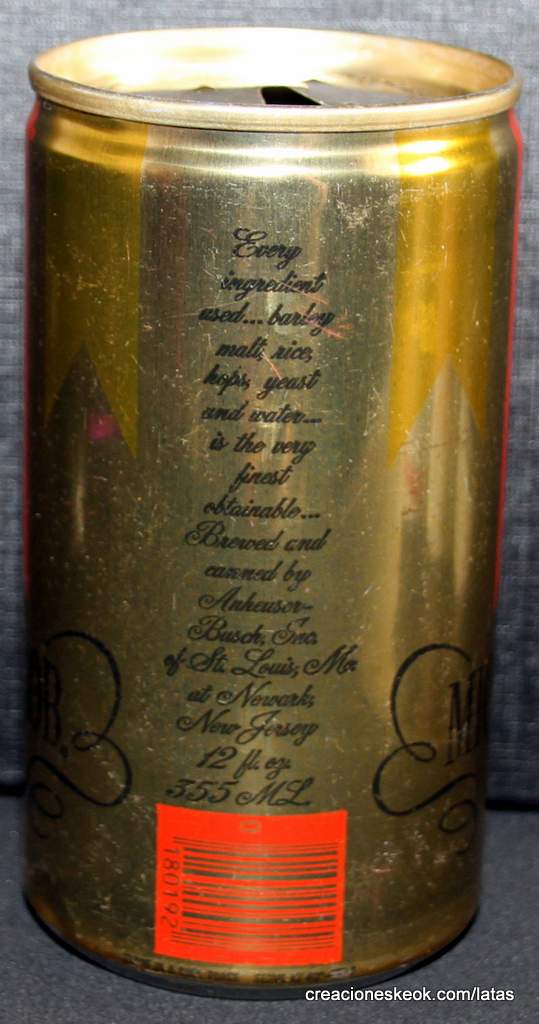 Every
ingredient
used... barley
malt, rice,
hops, yeast
and water...
is the very
finest
obtainable...
Brewed and
canned by
Anheuser-
Busch, Inc.
of St. Louis, Mo.
at Newark,
New Jersey
12 fl. oz.
355 ML
OR.
MI
180192
creacioneskeok.com/latas